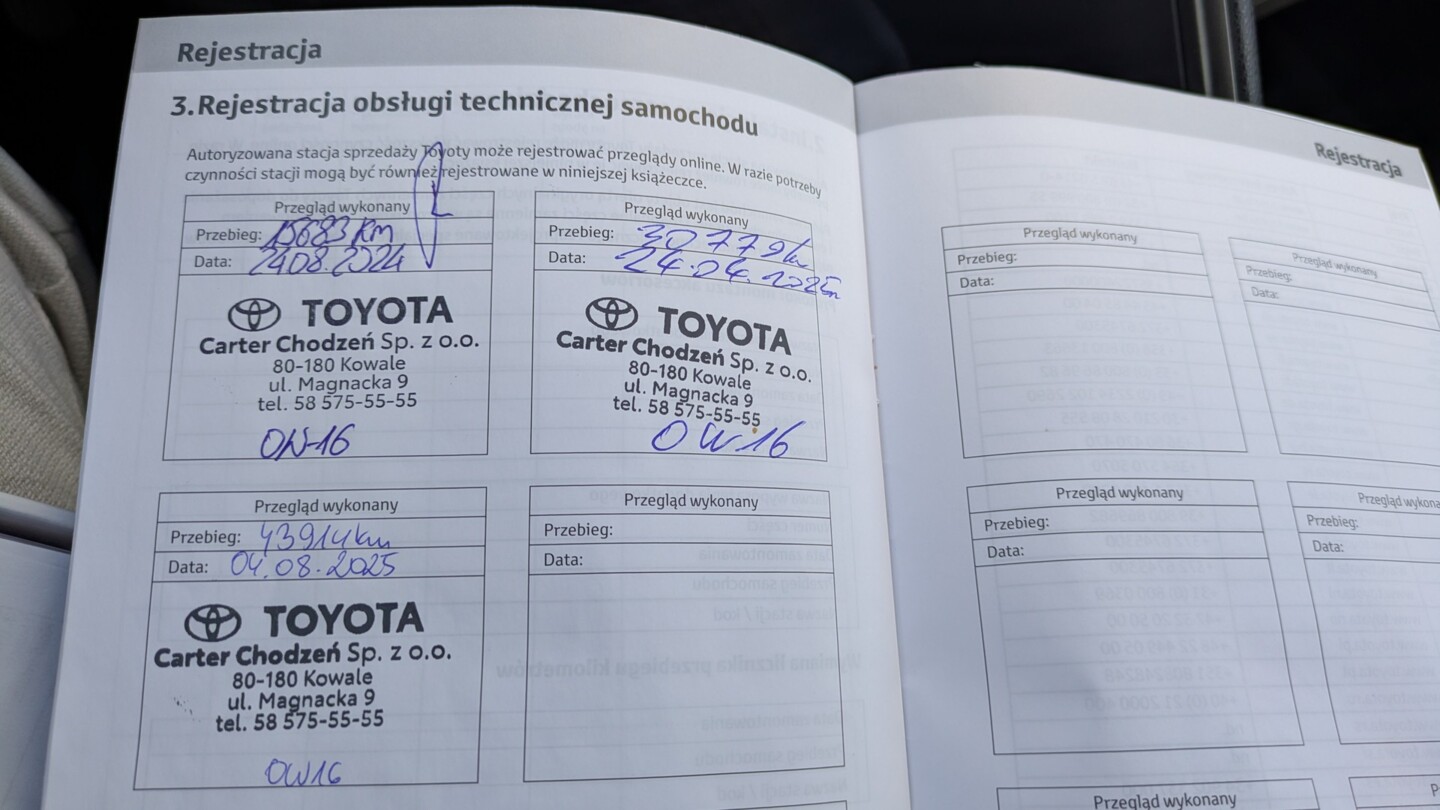 Rejestracja
3.Rejestracja obsługi technicznej samochodu
Autoryzowana stacja sprzedaży Toyoty może rejestrować przeglądy online. W razie potrzeby
czynności stacji mogą być również rejestrowane w niniejszej książeczce.
Przegląd wykonany
Przebieg: 15683 km
Data: 24.08.2024
TOYOTA
Carter Chodzeń Sp. z o.o.
80-180 Kowale
ul. Magnacka 9
tel. 58 575-55-55
OW-16
Przegląd wykonany
Przebieg: 30779km
Data: 24.04.2025
TOYOTA
Carter Chodzeń Sp. z o.o.
80-180 Kowale
ul. Magnacka 9
tel. 58 575-55-55
OW16
Przegląd wykonany
Przebieg: 43914km
Data: 04.08.2025
TOYOTA
Carter Chodzeń Sp. z o.o.
80-180 Kowale
ul. Magnacka 9
tel. 58 575-55-55
OW16
Przegląd wykonany
Przebieg:
Data:
Rejestracja
Przegląd wykonany
Przebieg:
Data:
Przegląd wykonany
Przebieg:
Data:
Przegląd wykonany
Przebieg:
Data:
Przegląd wykona
Przebieg:
Data:
Przegląd wykonany